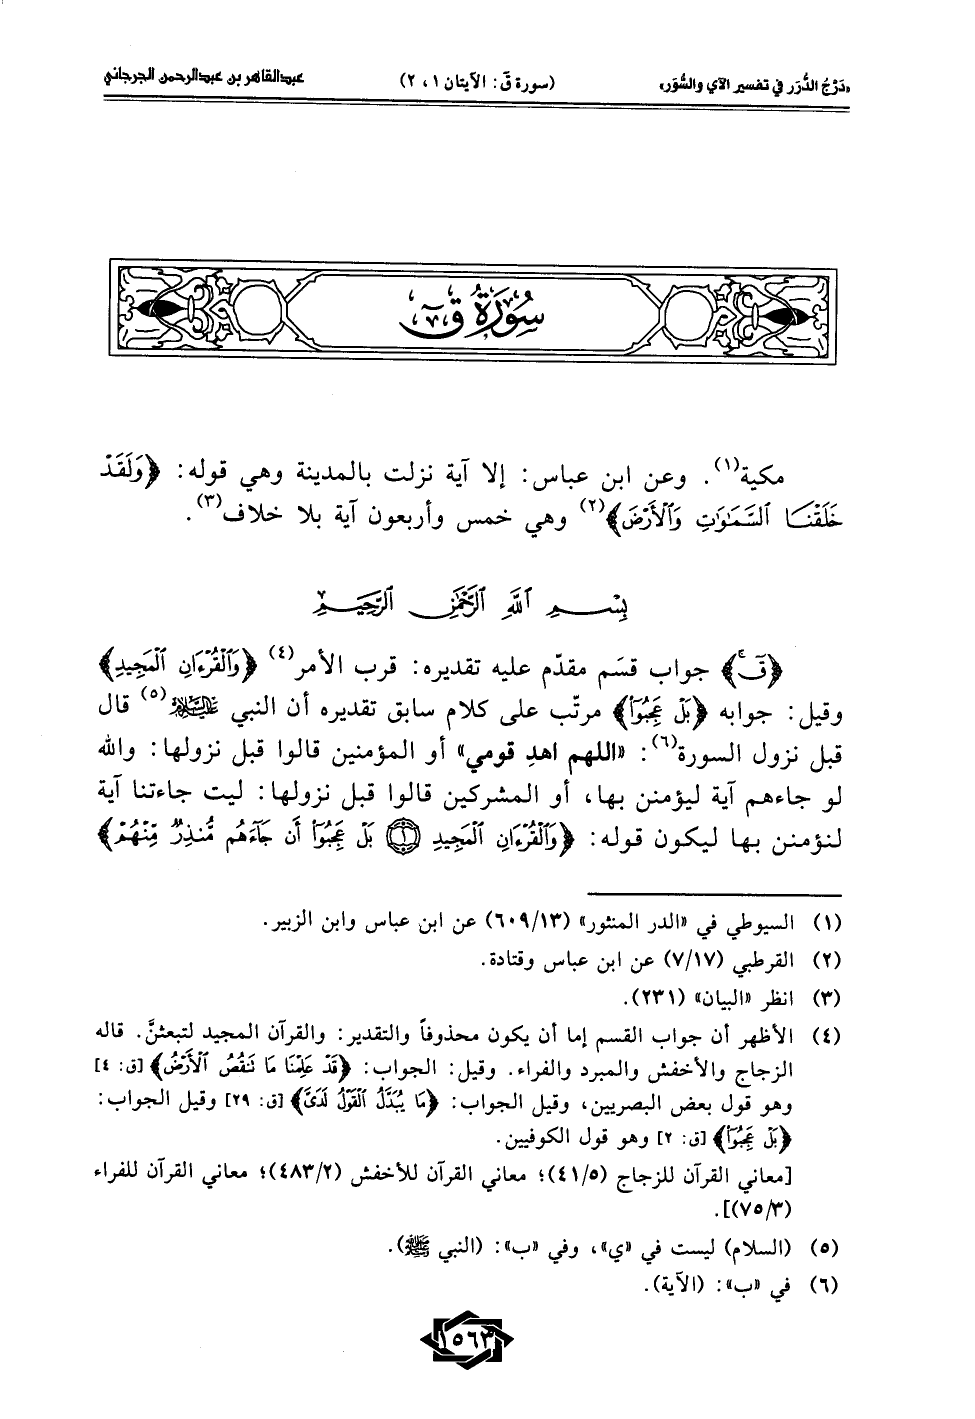 «دَرْجُ الدُّرَر في تفسير الآي والسُّوَر» (سورة قَ: الآيتان ١ ، ٢) عبدالقاهر بن عبدالرحمن الجرجاني
سُورَةُ قٓ
مكية(١). وعن ابن عباس: إلا آية نزلت بالمدينة وهي قوله: ﴿وَلَقَدْ
خَلَقْنَا ٱلسَّمَٰوَٰتِ وَٱلْأَرْضَ﴾(٢) وهي خمس وأربعون آية بلا خلاف(٣).
بِسْمِ ٱللَّهِ ٱلرَّحْمَٰنِ ٱلرَّحِيمِ
﴿قٓۚ﴾ جواب قسَم مقدّم عليه تقديره: قرب الأمر(٤) ﴿وَٱلْقُرْءَانِ ٱلْمَجِيدِ﴾
وقيل: جوابه ﴿بَلْ عَجِبُوٓا۟﴾ مرتّب على كلام سابق تقديره أن النبي عليه السلام(٥) قال
قبل نزول السورة(٦): «اللهم اهدِ قومي» أو المؤمنين قالوا قبل نزولها: والله
لو جاءهم آية ليؤمنن بها، أو المشركين قالوا قبل نزولها: ليت جاءتنا آية
لنؤمنن بها ليكون قوله: ﴿وَٱلْقُرْءَانِ ٱلْمَجِيدِ ۝١ بَلْ عَجِبُوٓا۟ أَن جَآءَهُم مُّنذِرٌ مِّنْهُمْ﴾
(١) السيوطي في «الدر المنثور» (٦٠٩/١٣) عن ابن عباس وابن الزبير.
(٢) القرطبي (٧/١٧) عن ابن عباس وقتادة.
(٣) انظر «البيان» (٢٣١).
(٤) الأظهر أن جواب القسم إما أن يكون محذوفاً والتقدير: والقرآن المجيد لتبعثنَّ. قاله
الزجاج والأخفش والمبرد والفراء. وقيل: الجواب: ﴿قَدْ عَلِمْنَا مَا تَنقُصُ ٱلْأَرْضُ﴾ [ق: ٤]
وهو قول بعض البصريين، وقيل الجواب: ﴿مَا يُبَدَّلُ ٱلْقَوْلُ لَدَىَّ﴾ [ق: ٢٩] وقيل الجواب:
﴿بَلْ عَجِبُوٓا۟﴾ [ق: ٢] وهو قول الكوفيين.
[معاني القرآن للزجاج (٤١/٥)؛ معاني القرآن للأخفش (٤٨٣/٢)؛ معاني القرآن للفراء
(٧٥/٣)].
(٥) (السلام) ليست في «ي»، وفي «ب»: (النبي ﷺ).
(٦) في «ب»: (الآية).
١٥٦٣